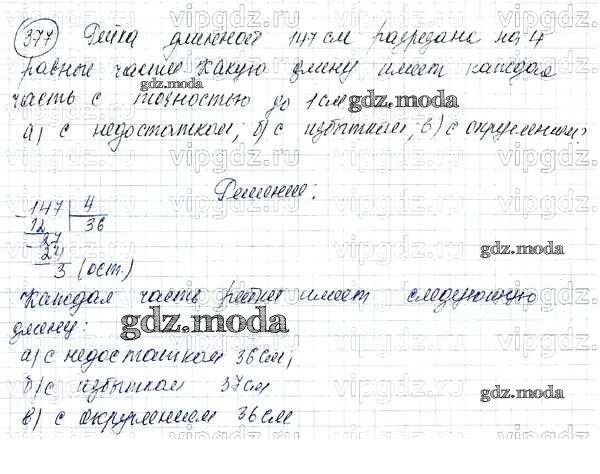 377 Рейка длиной 147 см разрезана на 4
равные части. Какую длину имеет каждая
часть с точностью до 1 см
а) с недостатком; б) с избытком; в) с округлением?
Решение:
147 4
12 36
27
24
3 (ост.)
Каждая часть рейки имеет следующую
длину:
а) с недостатком 36 см;
б) с избытком 37 см
в) с округлением 36 см
gdz.moda
gdz.moda
gdz.moda
gdz.moda
gdz.moda
gdz.moda
vipgdz.ru